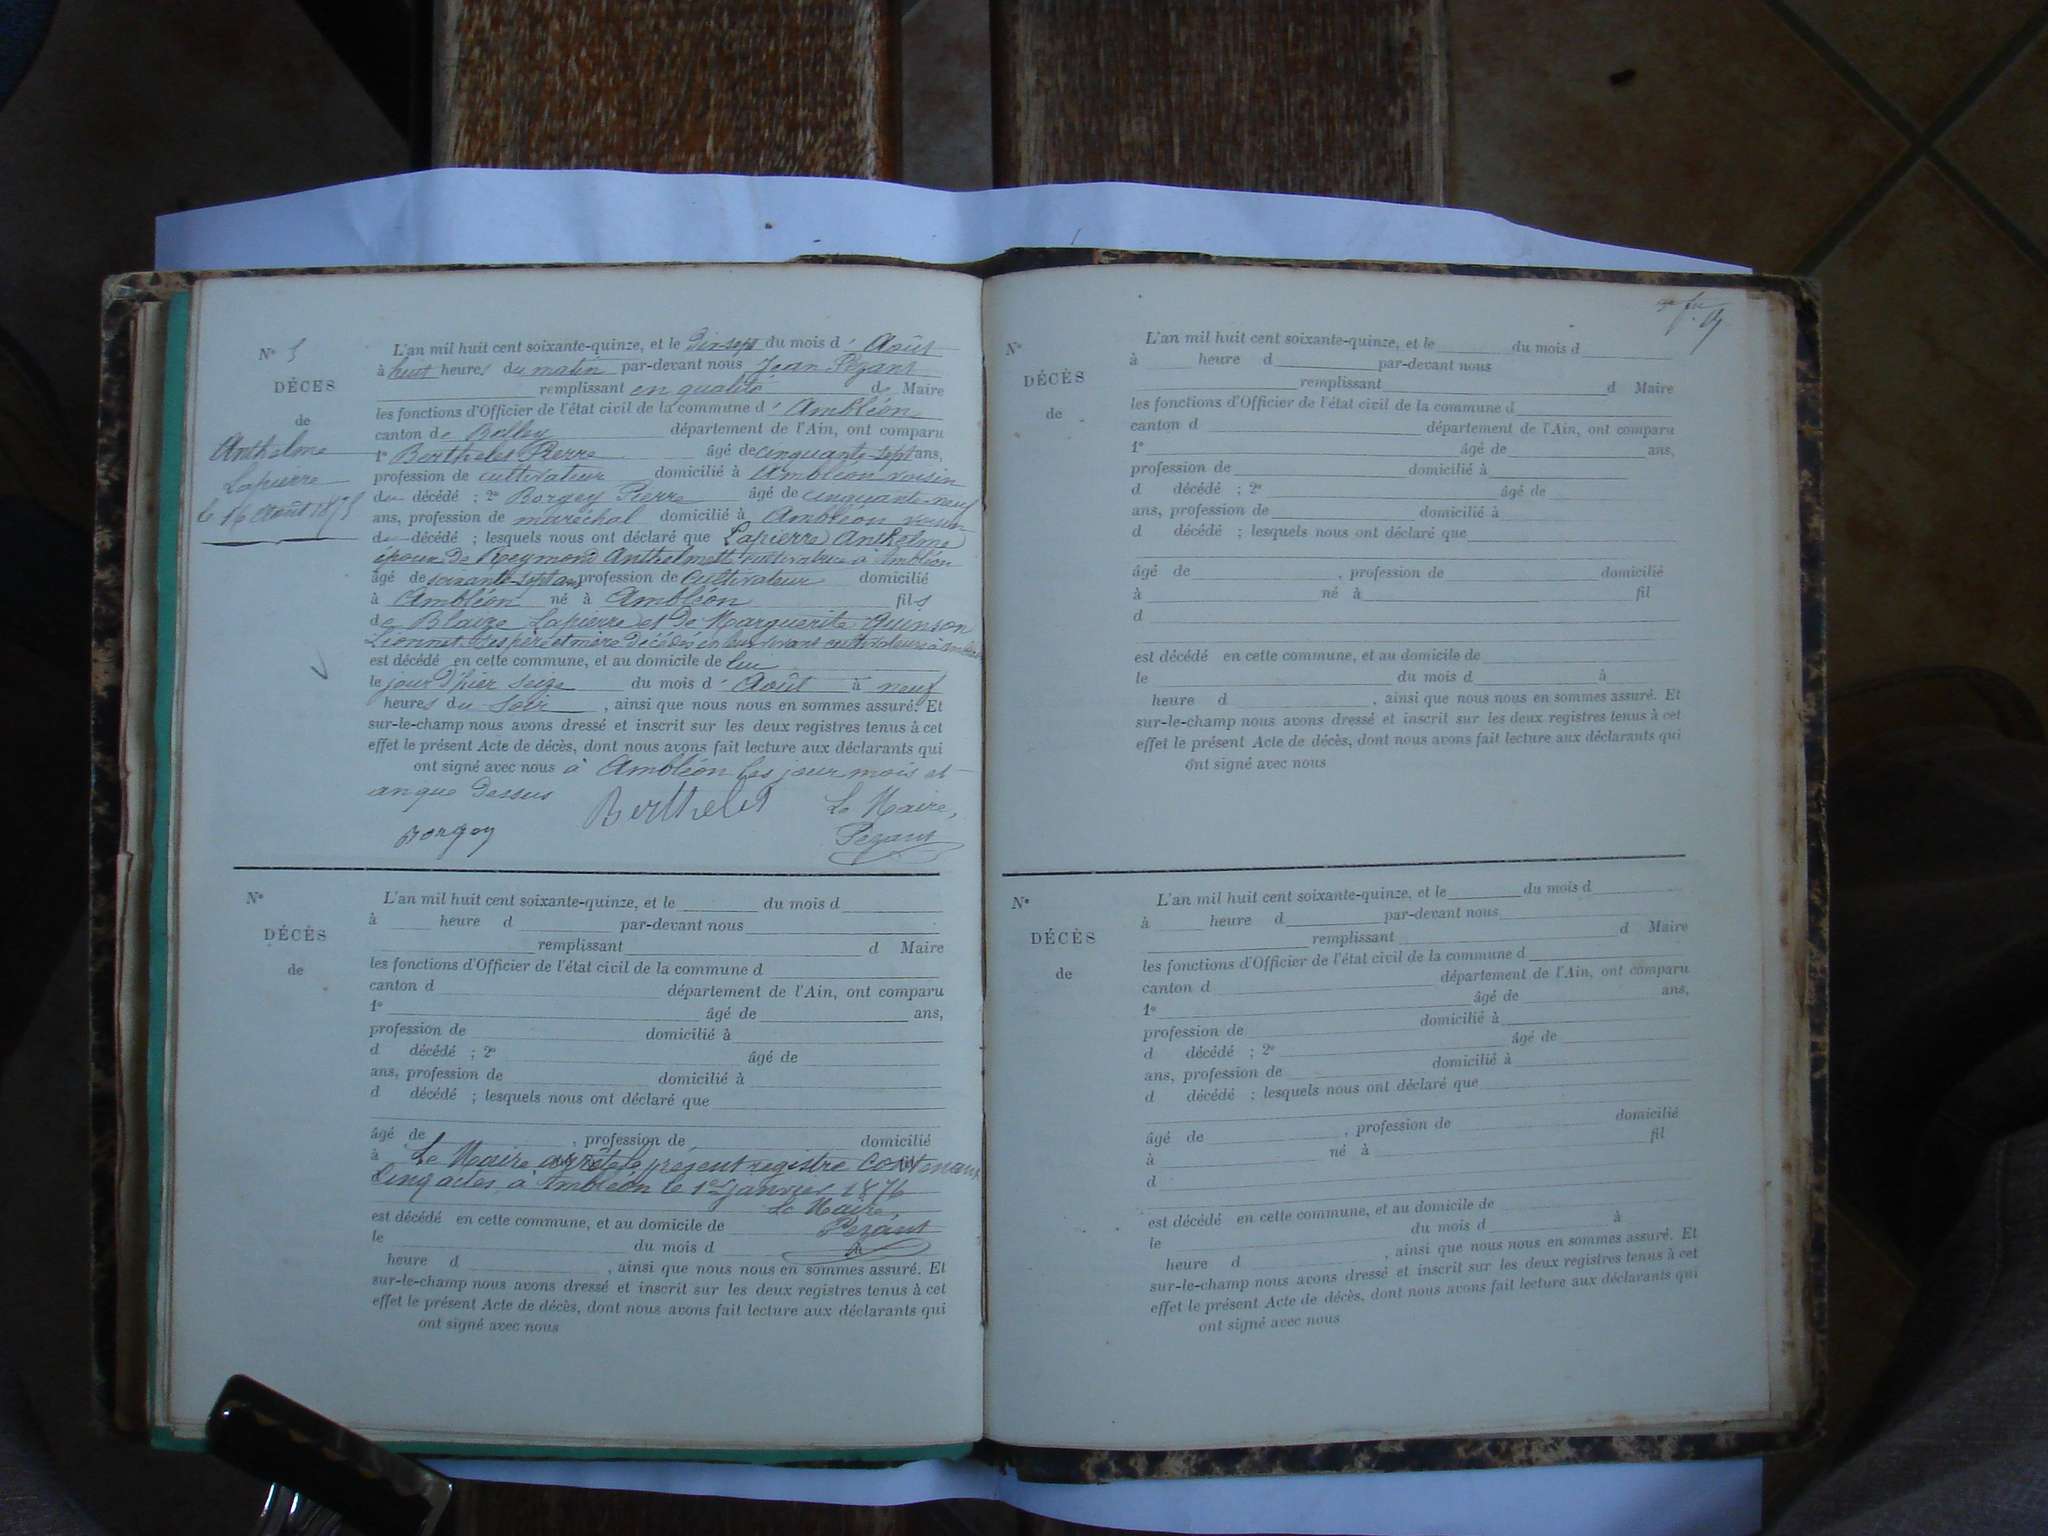 N° 5
DÉCES
de
Anthelme
Lapierre
le 16 Août 1875
L'an mil huit cent soixante-quinze, et le dix sept du mois d' Août
à huit heures du matin par-devant nous Jean Pezant
remplissant en qualité de Maire
les fonctions d'Officier de l'état civil de la commune d' Ambléon
canton de Belley département de l'Ain, ont comparu
1° Berthelet Pierre âgé de cinquante-sept ans,
profession de cultivateur domicilié à Ambléon voisin
du décédé ; 2° Borgey Pierre âgé de cinquante-neuf
ans, profession de maréchal domicilié à Ambléon voisin
du décédé ; lesquels nous ont déclaré que Lapierre Anthelme
époux de Reymond Anthelmette cultivatrice à Ambléon
âgé de soixante-sept ans profession de Cultivateur domicilié
à Ambléon né à Ambléon fils
de Blaize Lapierre et de Marguerite Quinson
Lionnet ses père et mère décédés en leur vivant cultivateurs à Ambléon
est décédé en cette commune, et au domicile de lui
le jour d'hier seize du mois d' Août à neuf
heures du soir , ainsi que nous nous en sommes assuré. Et
sur-le-champ nous avons dressé et inscrit sur les deux registres tenus à cet
effet le présent Acte de décès, dont nous avons fait lecture aux déclarants qui
ont signé avec nous à Ambléon les jour mois et
an que dessus
Berthelet Le Maire,
Borgey Pezant
N°
DÉCÈS
de
L'an mil huit cent soixante-quinze, et le du mois d
à heure d par-devant nous
remplissant d Maire
les fonctions d'Officier de l'état civil de la commune d
canton d département de l'Ain, ont comparu
1° âgé de ans,
profession de domicilié à
d décédé ; 2° âgé de
ans, profession de domicilié à
d décédé ; lesquels nous ont déclaré que
âgé de , profession de domicilié
à Le Maire arrête le présent registre contenant
Cinq actes, à Ambléon le 1er Janvier 1876
Le Maire,
est décédé en cette commune, et au domicile de Pezant
le du mois d
heure d , ainsi que nous nous en sommes assuré. Et
sur-le-champ nous avons dressé et inscrit sur les deux registres tenus à cet
effet le présent Acte de décès, dont nous avons fait lecture aux déclarants qui
ont signé avec nous
N°
DÉCÈS
de
L'an mil huit cent soixante-quinze, et le du mois d
à heure d par-devant nous
remplissant d Maire
les fonctions d'Officier de l'état civil de la commune d
canton d département de l'Ain, ont comparu
1° âgé de ans,
profession de domicilié à
d décédé ; 2° âgé de
ans, profession de domicilié à
d décédé ; lesquels nous ont déclaré que
âgé de , profession de domicilié
à né à fil
d
est décédé en cette commune, et au domicile de
le du mois d à
heure d , ainsi que nous nous en sommes assuré. Et
sur-le-champ nous avons dressé et inscrit sur les deux registres tenus à cet
effet le présent Acte de décès, dont nous avons fait lecture aux déclarants qui
ont signé avec nous
N°
DÉCÈS
de
L'an mil huit cent soixante-quinze, et le du mois d
à heure d par-devant nous
remplissant d Maire
les fonctions d'Officier de l'état civil de la commune d
canton d département de l'Ain, ont comparu
1° âgé de ans,
profession de domicilié à
d décédé ; 2° âgé de
ans, profession de domicilié à
d décédé ; lesquels nous ont déclaré que
âgé de , profession de domicilié
à né à fil
d
est décédé en cette commune, et au domicile de
le du mois d à
heure d , ainsi que nous nous en sommes assuré. Et
sur-le-champ nous avons dressé et inscrit sur les deux registres tenus à cet
effet le présent Acte de décès, dont nous avons fait lecture aux déclarants qui
ont signé avec nous